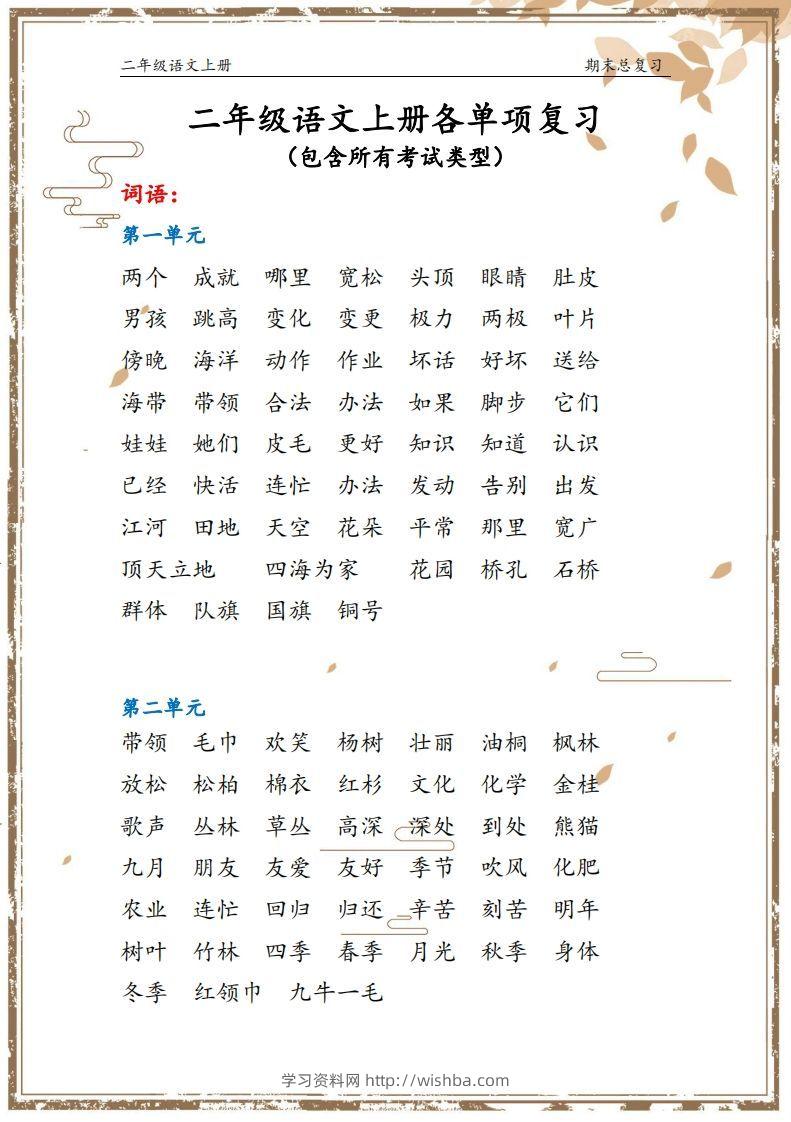 二年级语文上册 期末总复习
二年级语文上册各单项复习
（包含所有考试类型）
词语：
第一单元
两个 成就 哪里 宽松 头顶 眼睛 肚皮
男孩 跳高 变化 变更 极力 两极 叶片
傍晚 海洋 动作 作业 坏话 好坏 送给
海带 带领 合法 办法 如果 脚步 它们
娃娃 她们 皮毛 更好 知识 知道 认识
已经 快活 连忙 办法 发动 告别 出发
江河 田地 天空 花朵 平常 那里 宽广
顶天立地 四海为家 花园 桥孔 石桥
群体 队旗 国旗 铜号
第二单元
带领 毛巾 欢笑 杨树 壮丽 油桐 枫林
放松 松柏 棉衣 红杉 文化 化学 金桂
歌声 丛林 草丛 高深 深处 到处 熊猫
九月 朋友 友爱 友好 季节 吹风 化肥
农业 连忙 回归 归还 辛苦 刻苦 明年
树叶 竹林 四季 春季 月光 秋季 身体
冬季 红领巾 九牛一毛
学习资料网 http://wishba.com